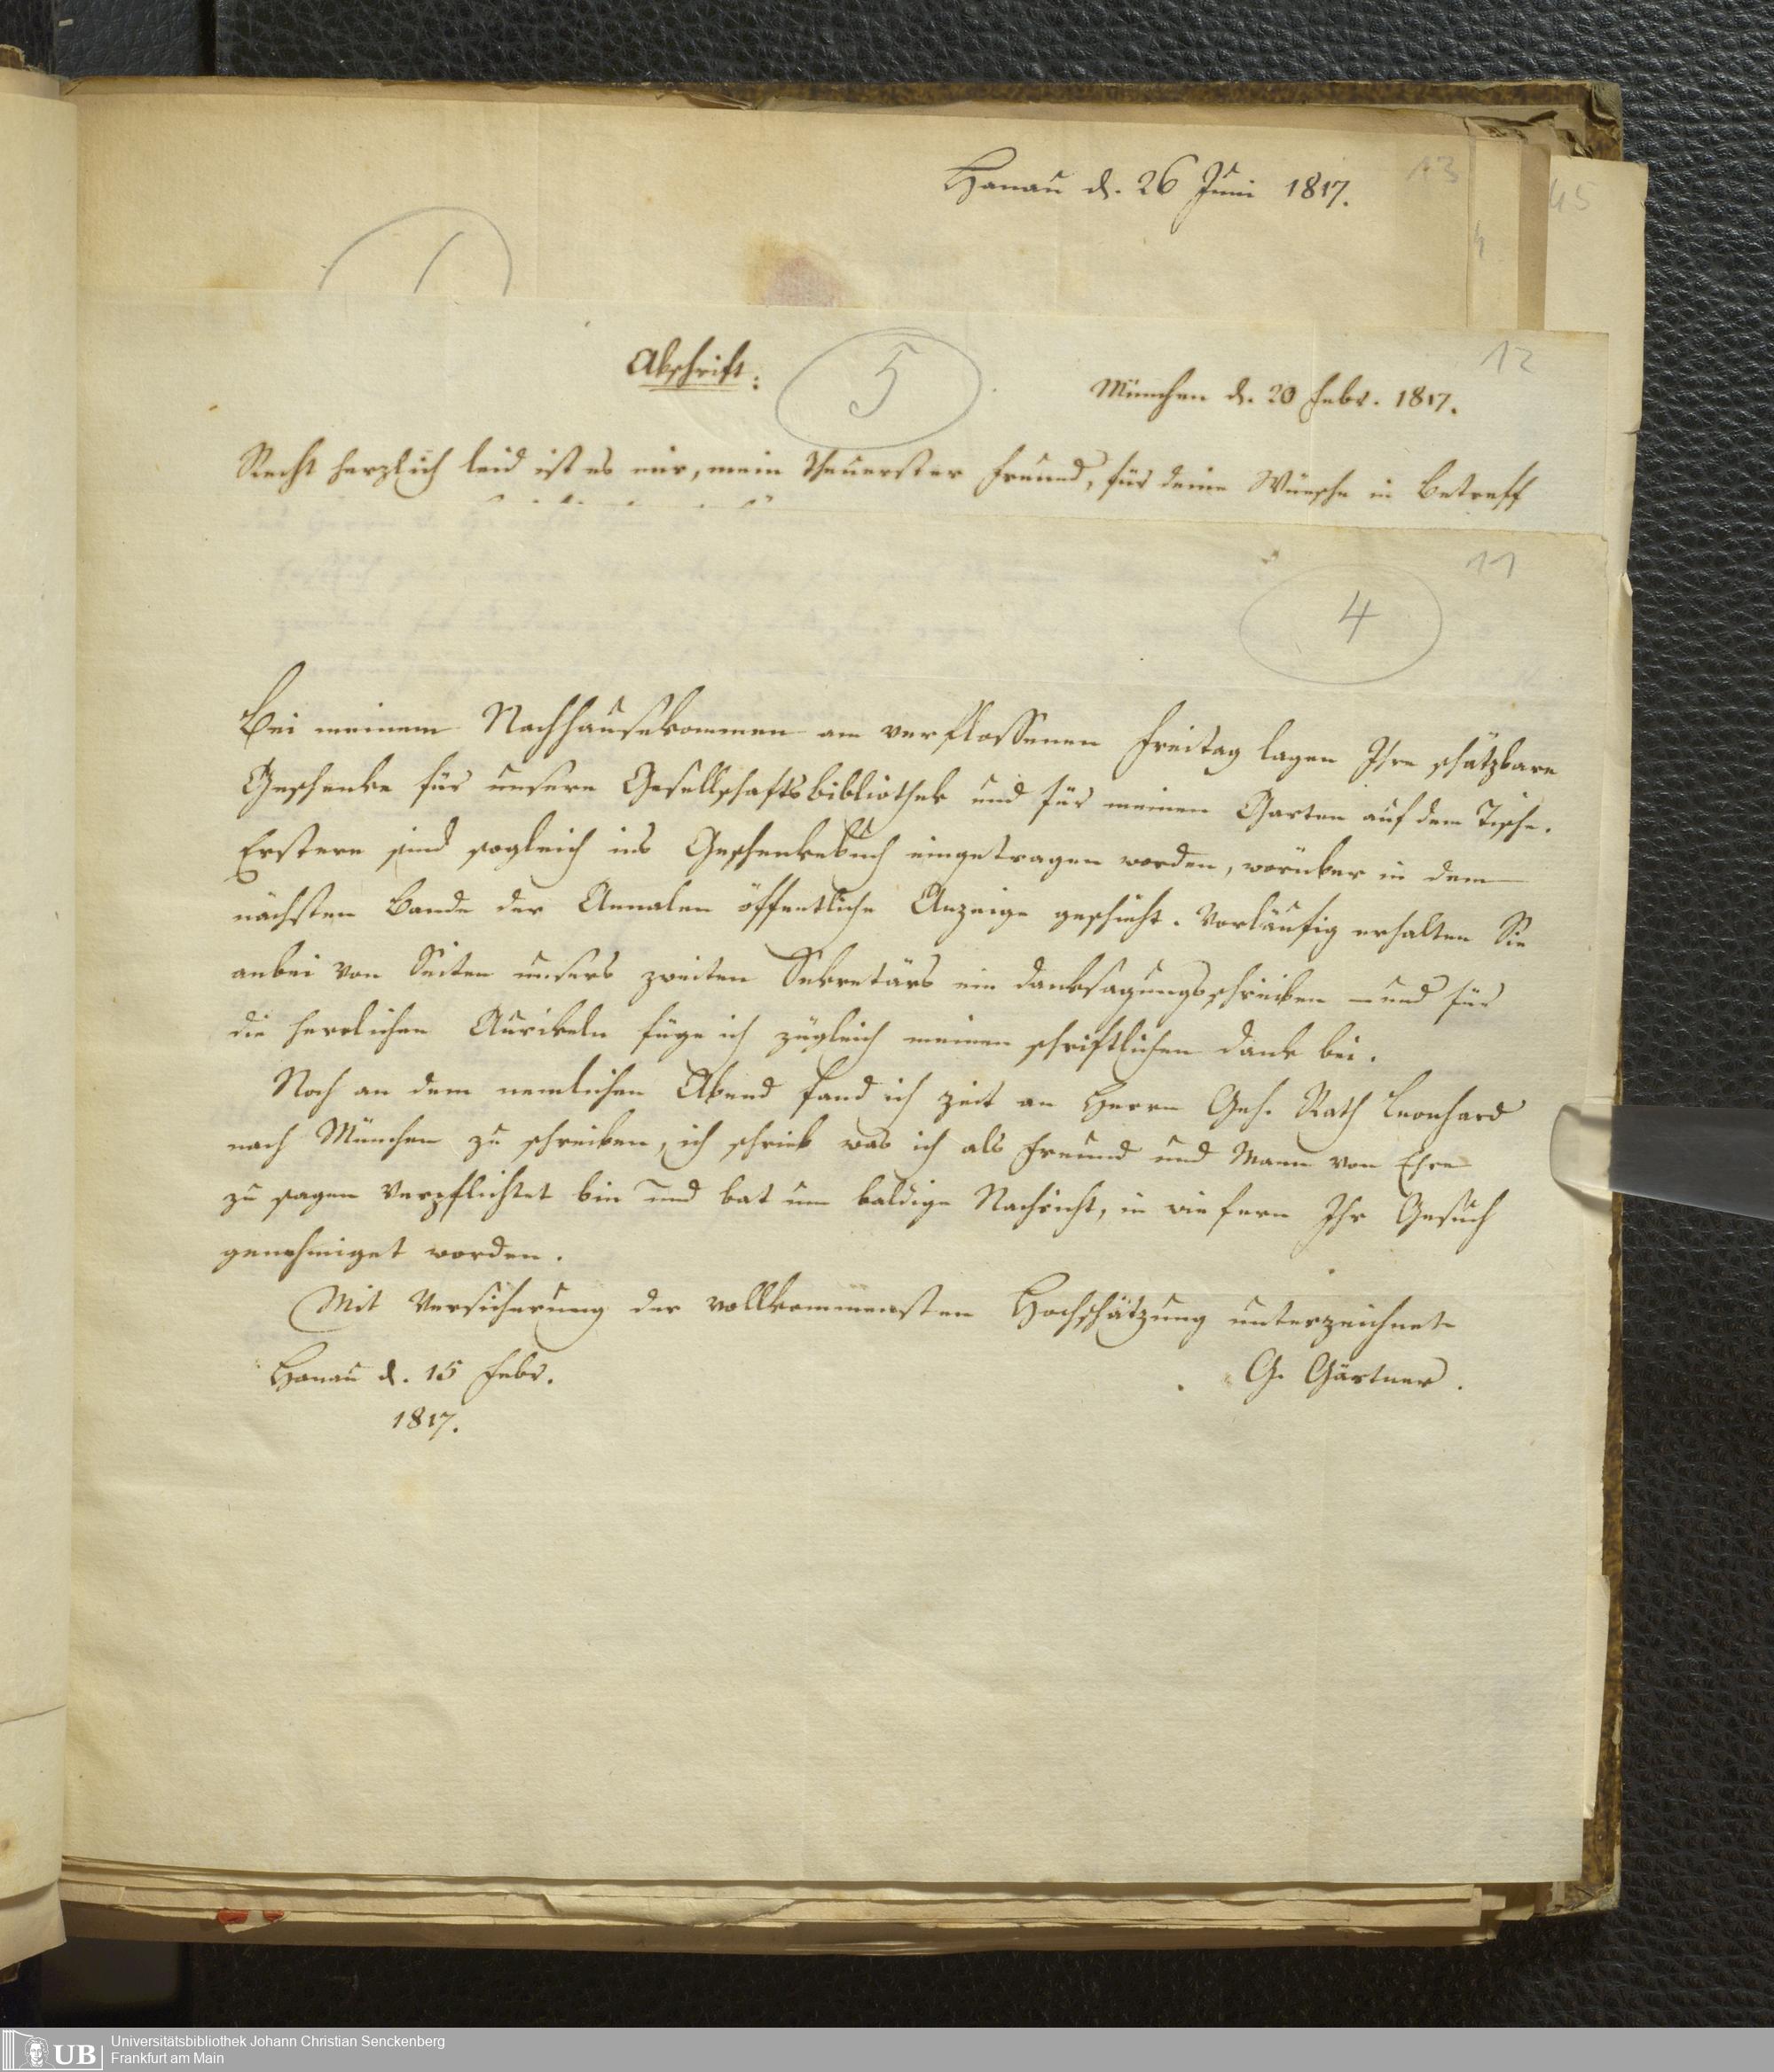 Hanau d. 26 Juni 1817.
13
45
1
Abschrift:
5
12
München d. 20 Febr. 1817.
Recht herzlich leid ist es mir, mein theuerster Freund, für deine Wünsche in Betreff
11
4
Bei meinem Nachhausekommen am verflossenen Freitag lagen Ihre schätzbare
Geschenke für unsere Gesellschaftsbibliothek und für meinen Garten auf dem Tische.
Erstere sind sogleich ins Geschenkebuch eingetragen worden, worüber in dem
nächsten Bande der Annalen öffentliche Anzeige geschieht. Vorläufig erhalten Sie
anbei von Seiten unsers zweiten Sekretärs ein Danksagungsschreiben – und für
die herrlichen Aurikeln füge ich zugleich meinen schriftlichen Dank bei.
Noch an dem nemlichen Abend fand ich Zeit an Herrn Geh. Rath Leonhard
nach München zu schreiben, ich schrieb was ich als Freund und Mann von Ehre
zu sagen verpflichtet bin und bat um baldige Nachricht, in wie fern Ihr Gesuch
genehmiget worden.
Mit Versicherung der vollkommensten Hochschätzung unterzeichnet
Hanau d. 15 Febr.
G. Gärtner.
1817.
UB
Universitätsbibliothek Johann Christian Senckenberg
Frankfurt am Main